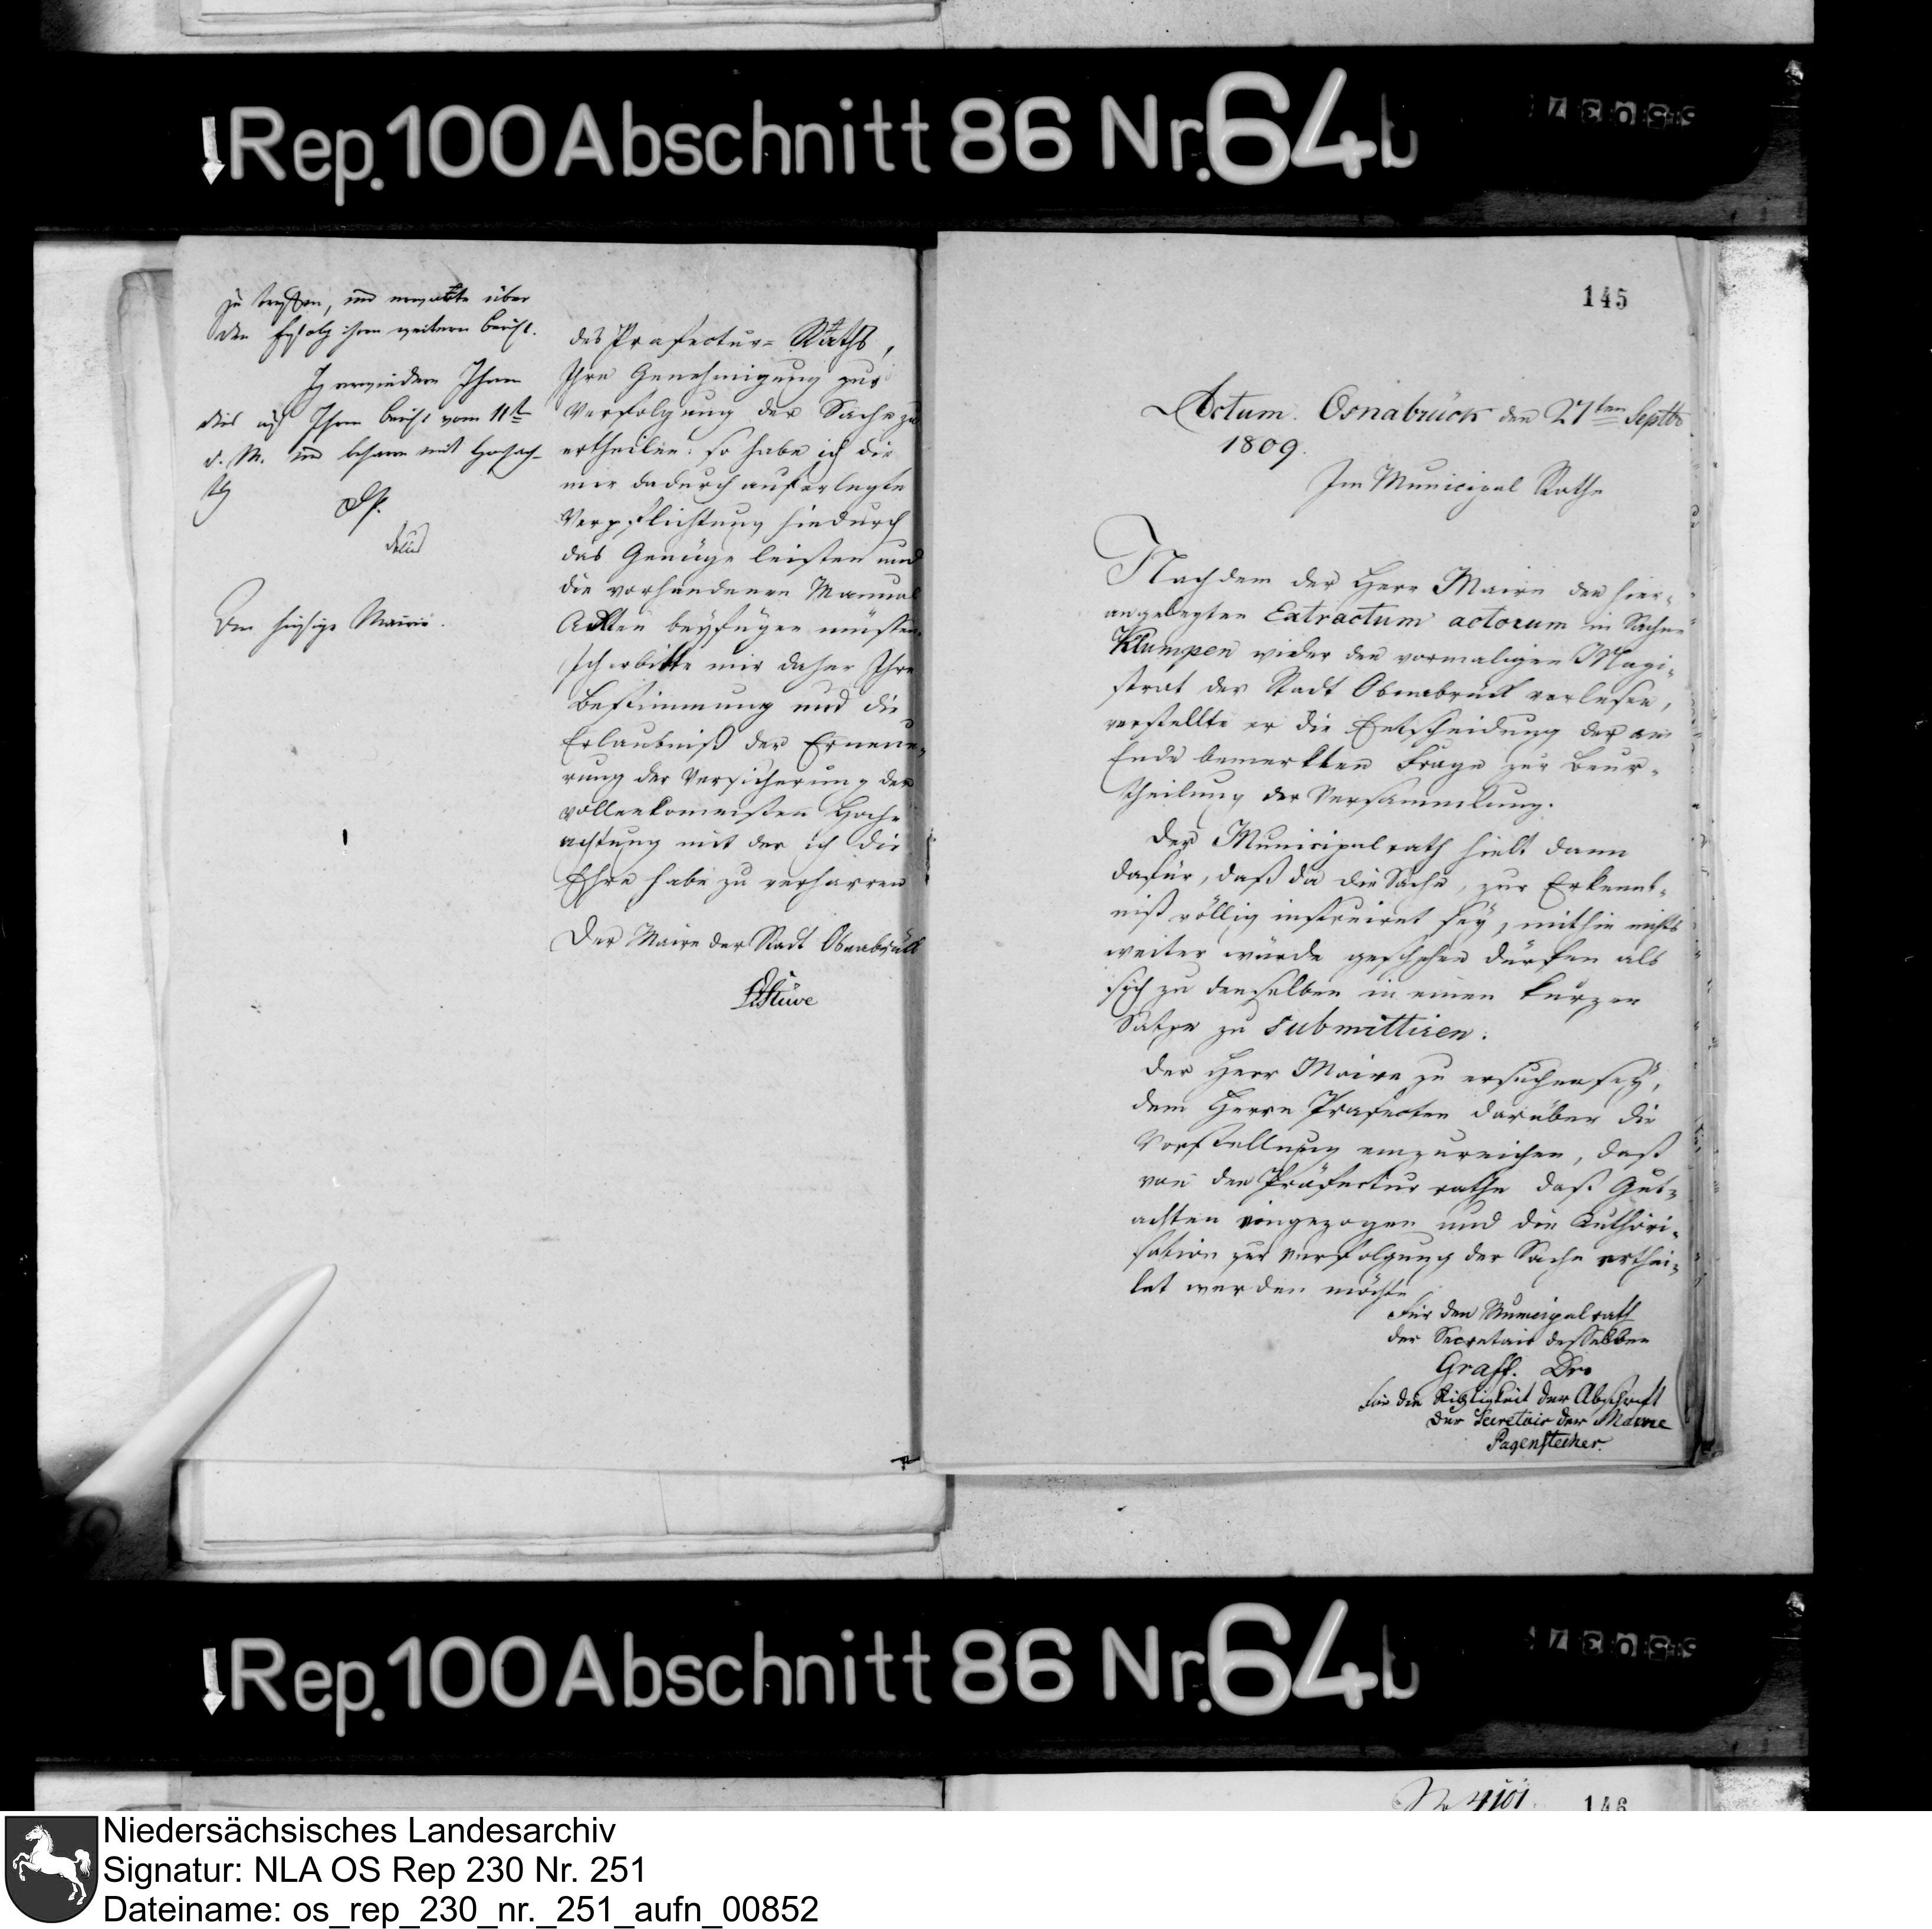 Rep. 100 Abschnitt 86 Nr. 64b
zu treffen, und erwarte über
den Erfolg ihren weitern Bericht.
Ich erwiedere Ihnen
dies auf Ihren Bericht vom 11t
d. M. und beharre mit Hochach-
tg
Den hiesigen Maire.
des Präfectur-Raths,
Ihre Genehmigung zur
Verfolgung der Sache zu
ertheilen: so habe ich die
mir dadurch auferlegte
Verpflichtung hiedurch
das Genüge leisten und
die vorhandenen Manual
Ackten beyfügen müssen.
Ich erbitte mir daher Ihre
Bestimmung und die
Erlaubniß der Erneue-
rung der Versicherung der
vollenkommensten Hoch-
achtung mit der ich die
Ehre habe zu verharren
Der Maire der Stadt Osnabrück
Stüve
145
Actum. Osnabrück den 27ten Septbr
1809.
Im Municipal Rathe
Nachdem der Herr Maire den hier-
angelegten Extractum actorum in Sachen
Klumpen wider den vormaligen Magi-
strat der Stadt Osnabrück verlesen,
verstellte er die Entscheidung der am
Ende bemerkten Frage zur Beur-
theilung der Versammlung.
Der Municipalrath hielt dann
dafür, daß da die Sache, zur Erkennt-
niß völlig instruiret sey, mithin nichts
weiter würde geschehen dürfen als
sich zu denselben in einen kurzen
Satze zu submittiren.
der Herr Maire zu ersuchen sey,
dem Herrn Präfecten darüber die
Vorstellung einzureichen, daß
von den Präfectur rathe daß Gut-
achten eingezogen und die Authori-
sation zur Verfolgung der Sache erthei-
let werden möchte
Für den Municipalrath
der Secretair desselben
Graff. Dr.
Für die Richtigkeit der Abschrift
Der Secretair der Mairie
Pagenstecher.
Rep. 100 Abschnitt 86 Nr. 64b
146
Niedersächsisches Landesarchiv
Signatur: NLA OS Rep 230 Nr. 251
Dateiname: os_rep_230_nr._251_aufn_00852